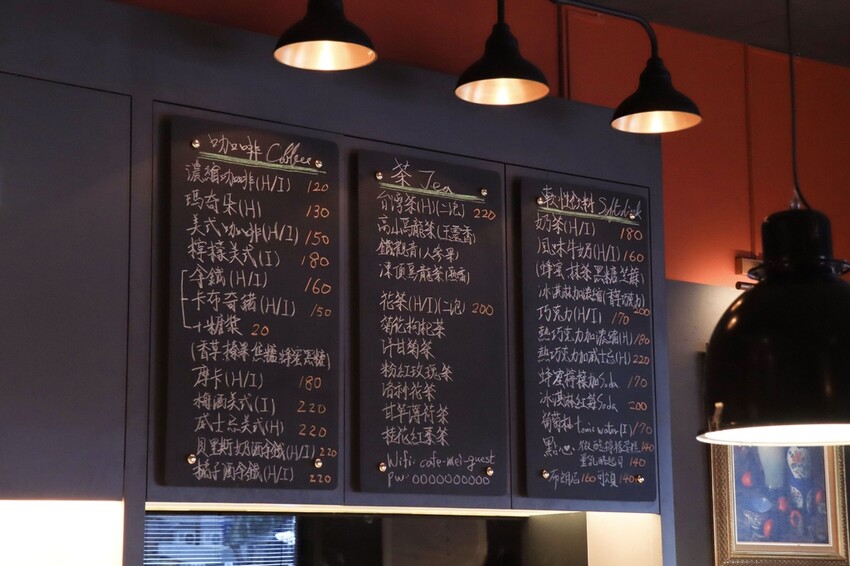 咖啡 Coffee
濃縮咖啡(H/I) 120
瑪奇朵(H) 130
美式咖啡(H/I) 150
檸檬美式(I) 180
拿鐵(H/I) 160
卡布奇諾(H/I) 150
+糖漿 20
(香草 榛果 焦糖 蜂蜜 黑糖)
摩卡(H/I) 180
梅酒美式(I) 220
威士忌美式(H) 220
貝里斯奶酒拿鐵(H/I) 220
橘子酒拿鐵(H/I) 220
茶 Tea
台灣茶(H)(二泡) 220
高山烏龍茶(玉露香)
鐵觀音(人參果)
凍頂烏龍茶
花茶(H/I)(二泡) 200
菊花枸杞茶
洋甘菊茶
粉紅玫瑰茶
洛神花茶
甘草薄荷茶
桂花紅棗茶
Wifi: cafe-mei-guest
pw: 0000000000
軟性飲料 Soft drink
奶茶(H/I) 180
風味牛奶(H/I) 160
(蜂蜜 抹茶 黑糖 芝麻)
冰淇淋加濃縮(香草/巧克力) 200
巧克力(H/I) 170
熱巧克力加濃縮(H) 180
熱巧克力加威士忌(H) 220
蜂蜜檸檬加Soda 170
冰淇淋紅莓Soda 200
葡萄柚tonic water(I) 170
點心 檸檬蛋糕 140
重乳酪起司 140
布朗尼 160 140